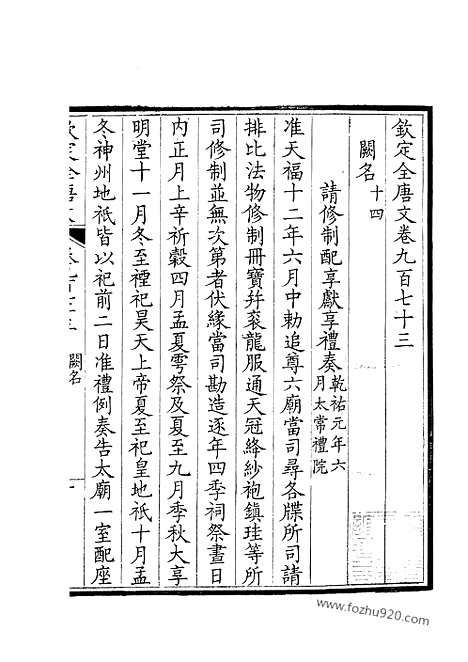 欽定全唐文卷九百七十三
闕名十四
請修制配享獻享禮奏乾祐元年六月太常禮院
准天福十二年六月中勅追尊六廟當司尋各牒所司請
排比法物修制冊寶幷袞龍服通天冠絳紗袍鎭珪等所
司修制並無次第者伏緣當司勘造逐年四季祠祭畫日
內正月上辛祈穀四月孟夏雩祭及夏至九月季秋大享
明堂十一月冬至禋祀昊天上帝夏至祀皇地祇十月孟
冬神州地祇皆以祀前二日准禮例奏告太廟一室配座
闕名
www.fozhu920.com